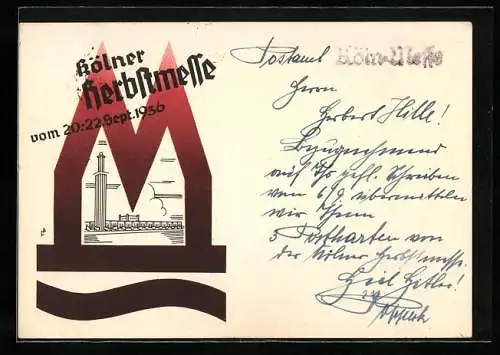 Kölner
Herbstmesse
vom 20.-22. Sept. 1936
Postamt Köln-Messe
Herrn
Herbert Hille!
Bezugnehmend
auf Ihr gefl. Schreiben
vom 6.9. übermitteln
wir Ihnen
5 Postkarten von
der Kölner Herbstmesse.
Heil Hitler!